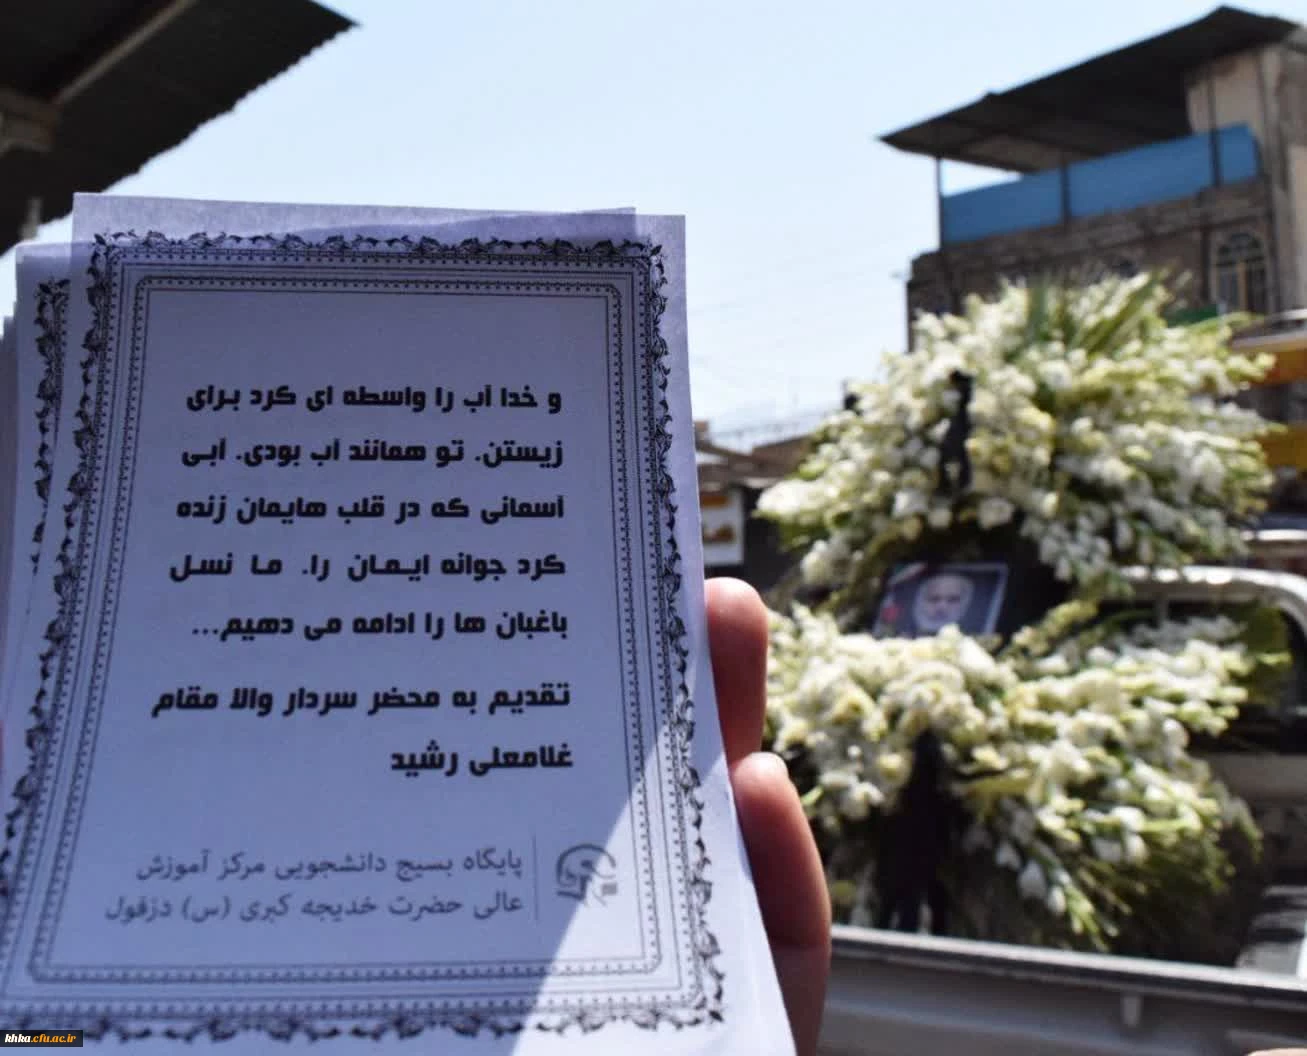 و خدا آب را واسطه ای کرد برای
زیستن. تو همانند آب بودی. آبی
آسمانی که در قلب هایمان زنده
کرد جوانه ایمان را. ما نسل
باغبان ها را ادامه می دهیم...
تقدیم به محضر سردار والا مقام
غلامعلی رشید
پایگاه بسیج دانشجویی مرکز آموزش
عالی حضرت خدیجه کبری (س) دزفول
khka.cfu.ac.ir